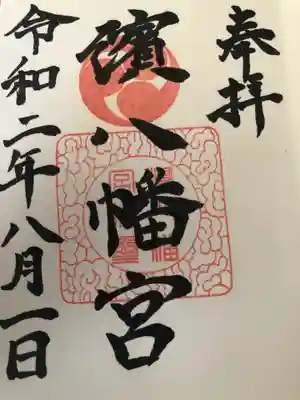 奉拝
濱八幡宮
令和二年八月一日